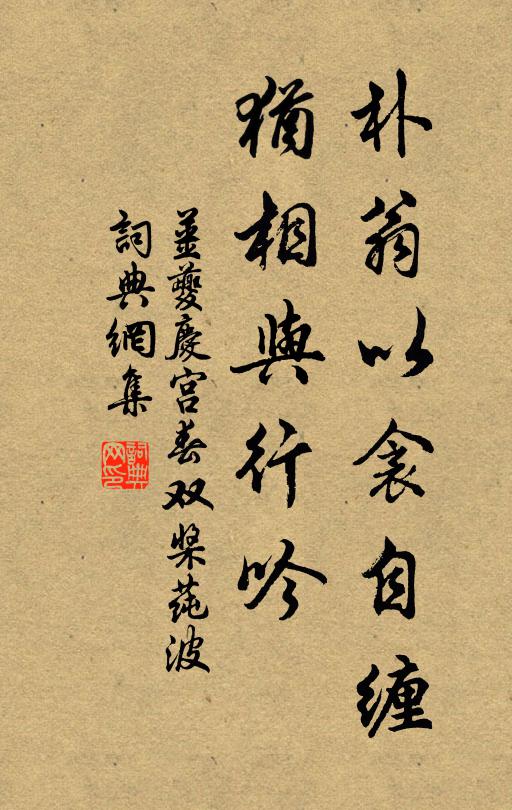 朴翁以衾自缠
猶相與行吟
姜夔慶宮春双桨莼波
詞典網集
詞典网印